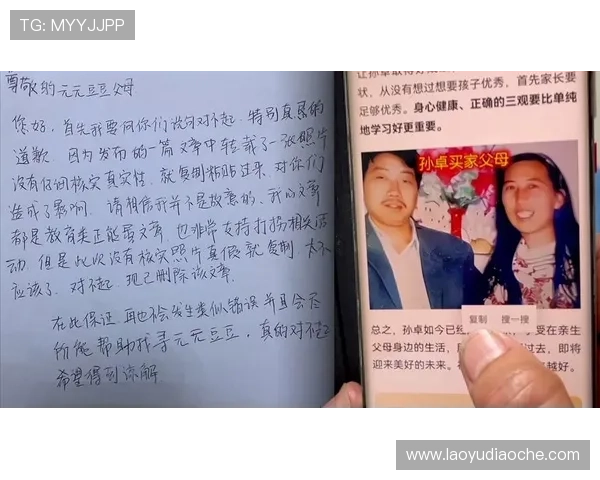 TG: MYYJJPP
尊敬的元元豆豆父母
您好，首先我要向你们说句对不起，特别真恳的
道歉，因为发布的一篇文章中转载了一张照片
没有仔细核实真实性，就复制粘贴过来，对你们
造成了影响，请相信我并不是故意的，我的文章
都是教育类正能量文章，也非常支持打拐相关活
动，但是此次没有核实照片真假就复制，太不
应该了，对不起，现已删除该文章。
在此保证，再也不会发生类似错误并且会尽
所能帮助找寻元元豆豆，真的对不起
希望得到谅解
让孙卓取得好成
状，从没有想过想要孩子优秀，首先家长要
足够优秀。身心健康、正确的三观要比单纯
地学习好更重要。
孙卓买家父母
复制 搜一搜
总之，孙卓如今已经 享受在亲生
父母身边的生活， 过去，即将
迎来美好的未来。 越好。
www.laoyudiaoche.com